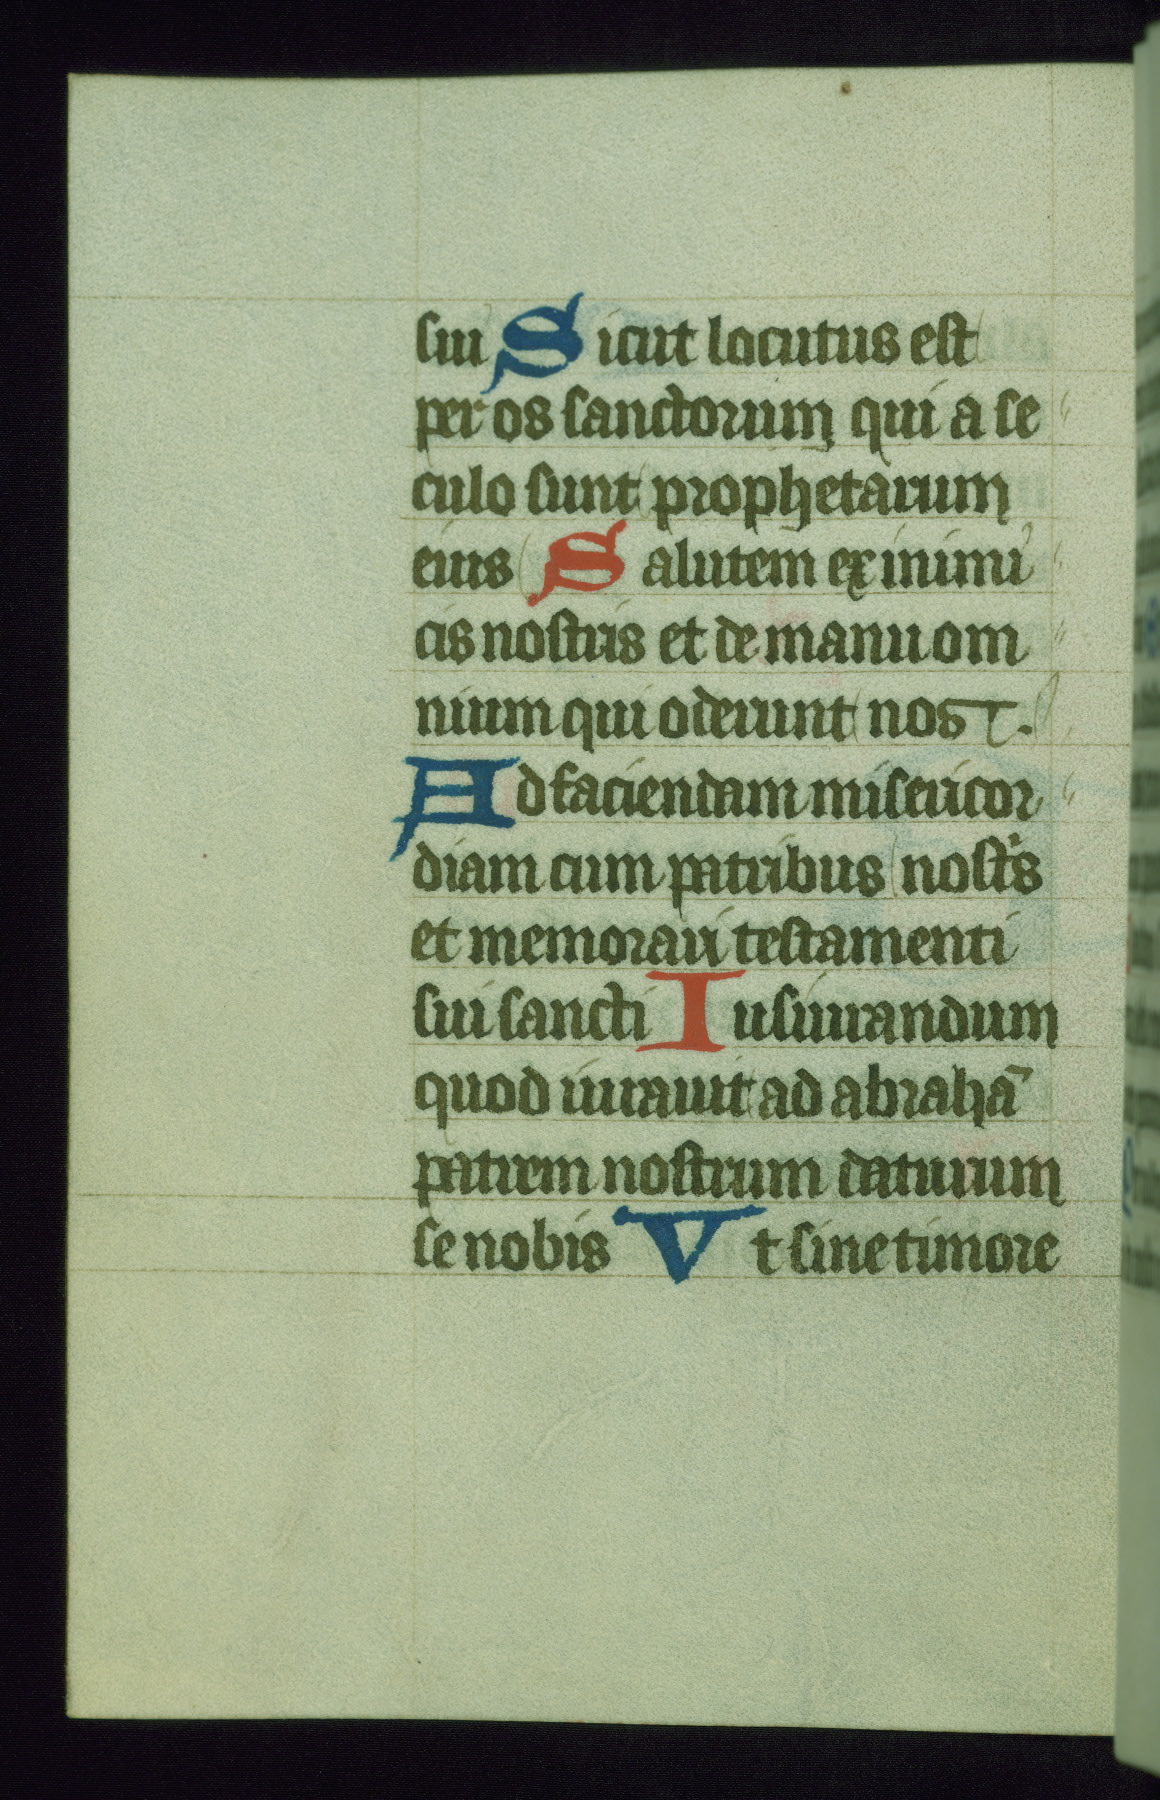 sui Sicut locutus est
per os sanctorum qui a se
culo sunt prophetarum
eius Salutem ex inimi
cis nostris et de manu om
nium qui oderunt nos.
Ad faciendam misericor
diam cum patribus nost's
et memorari testamenti
sui sancti Iusiurandum
quod iurauit ad abrahā
patrem nostrum daturum
se nobis Vt sine timore